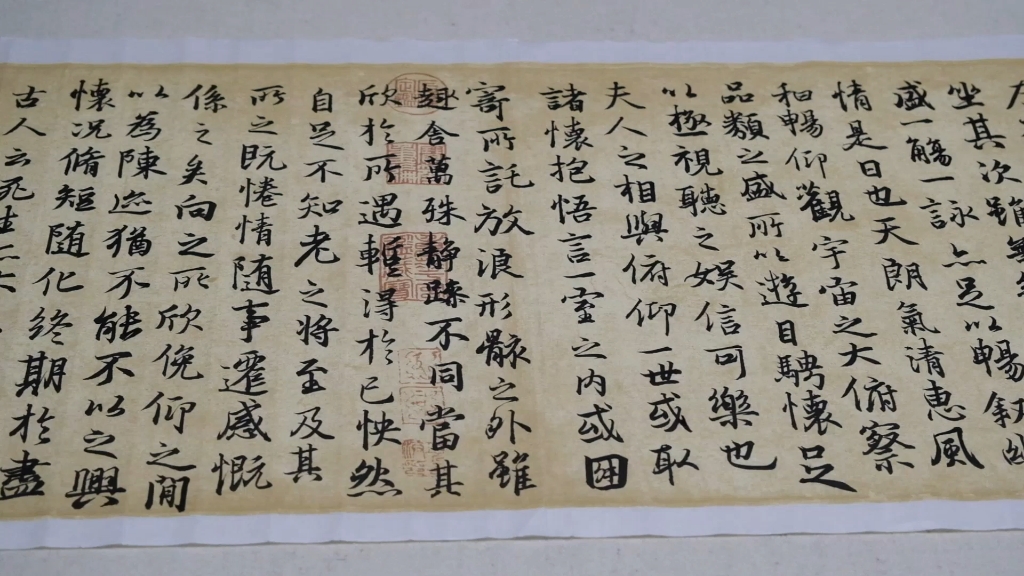 坐其次雖無
盛一觴一詠亦足以暢敘幽
情是日也天朗氣清惠風
和暢仰觀宇宙之大俯察
品類之盛所以遊目騁懷足
以極視聽之娛信可樂也
夫人之相與俯仰一世或取
諸懷抱悟言一室之內或因
寄所託放浪形骸之外雖
趣舍萬殊靜躁不同當其
欣於所遇輒得於己怏然
自足不知老之將至及其
所之既惓情隨事遷感慨
係之矣向之所欣俛仰之閒
以為陳迹猶不能不以之興
懷況脩短隨化終期於盡
古人云死生亦大